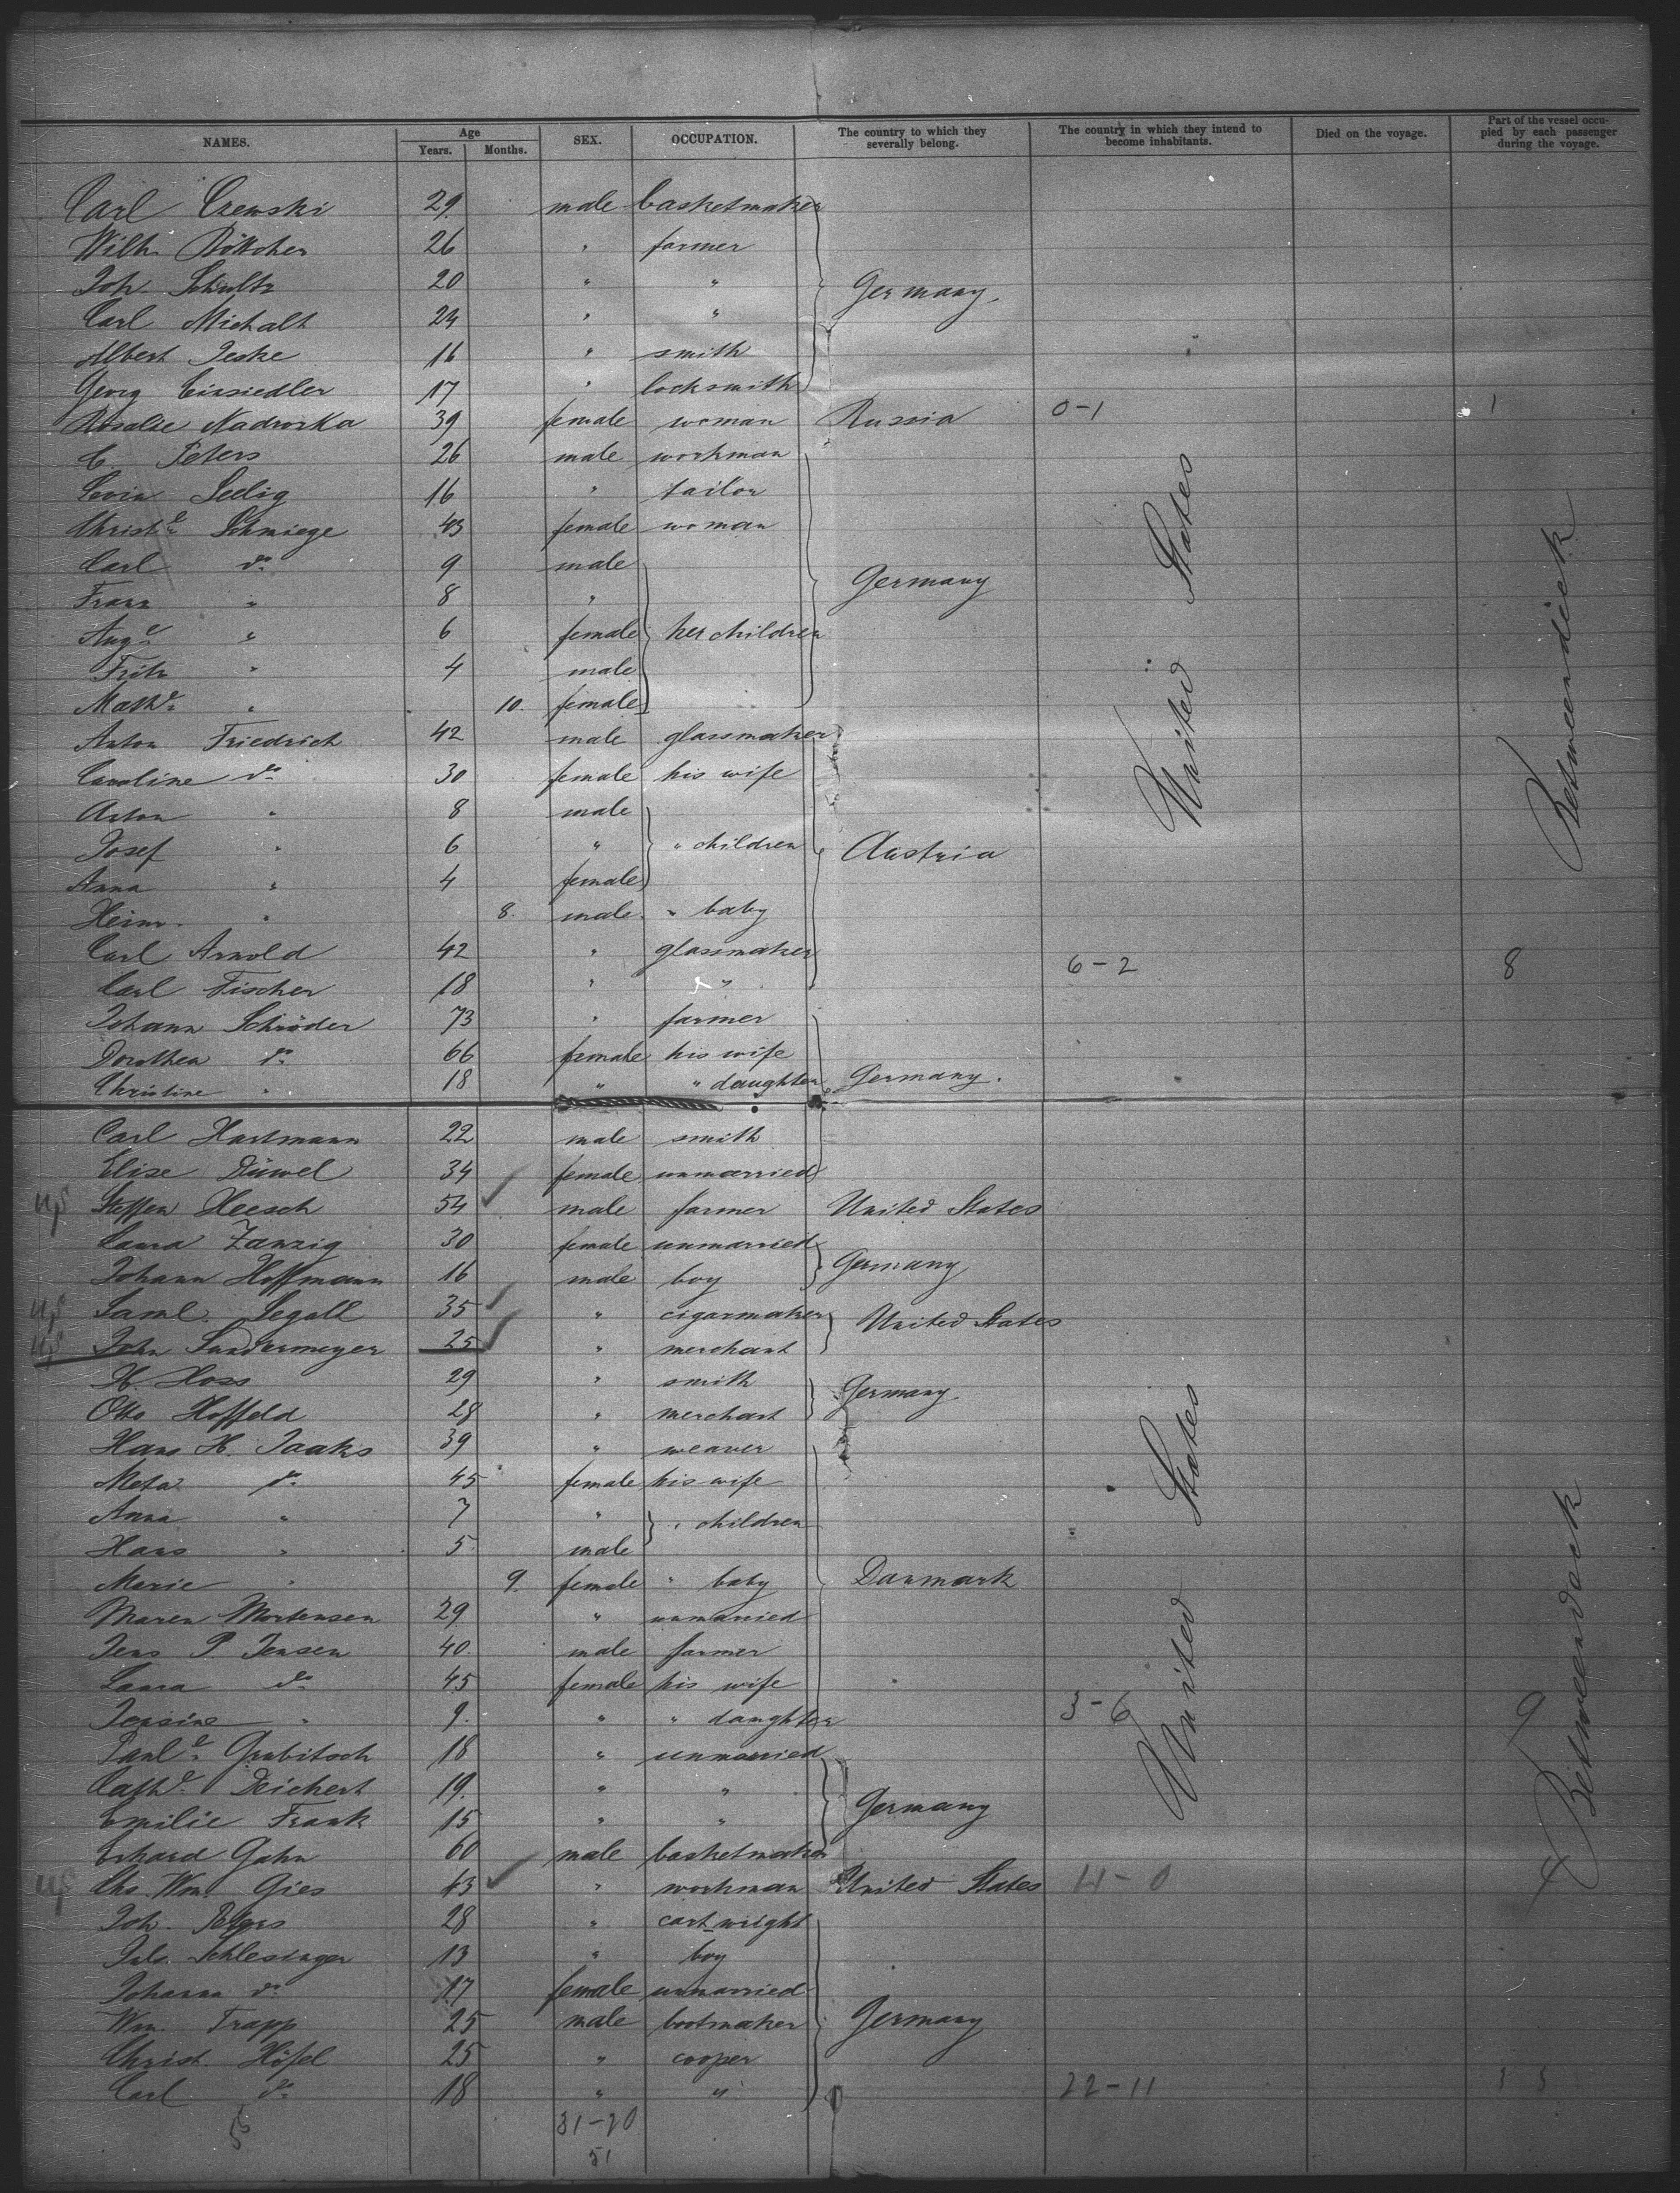 NAMES. Age Years. Months. SEX. OCCUPATION. The country to which they severally belong. The country in which they intend to become inhabitants. Died on the voyage. Part of the vessel occupied by each passenger during the voyage.
Carl Czewski 29 male basketmaker
Wilh. Böttcher 26 " farmer
Joh. Schultz 20 " " Germany
Carl Michalt 24 " "
Albert Jeske 16 " smith
Georg Einsiedler 17 " locksmith
Rosalie Nadrovka 39 female woman Russia 0-1 1
C. Peters 26 male workman
Levin Seelig 16 " tailor
Christe. Schmiege 43 female woman
Carl do. 9 male Germany
Franz " 8 "
Auge. " 6 female her children
Fritz " 4 male
Mathe. " 10. female
Anton Friedrich 42 male glassmaker
Caroline do. 30 female his wife
Anton " 8 male
Josef " 6 " " children Austria
Anna " 4 female
Heinr. " 8. male " baby
Carl Arnold 42 " glassmaker 6-2 8
Carl Fischer 18 " "
Johann Schröder 73 " farmer
Dorothea do. 66 female his wife
Christine " 18 " " daughter Germany.
United States
Betweendeck
Carl Hartmann 22 male smith
Elise Düwel 34 female unmarried
US Steffen Heesch 54 male farmer United States
Laura Zanzig 30 female unmarried Germany
Johann Hoffmann 16 male boy
US Saml. Segall 35 " cigarmaker United States
US John Sundermeyer 25 " merchant
H. Hoss 29 " smith Germany.
Otto Hoffeld 28 " merchant
Hans H. Jaaks 39 " weaver
Meta do. 45 female his wife
Anna " 7 " " children
Hans " 5 male
Marie " 9. female " baby Danmark
Maren Mortensen 29 " unmarried
Jens P. Jensen 40 male farmer
Laura do. 45 female his wife
Jensine " 9. " " daughter 3-6 9
Paule. Grubitsch 18 " unmarried
Cathe. Deichert 19. " " Germany
Emilie Frank 15 " "
Erhard Gahn 60 male basketmaker
US Chs. Wm. Gies 43 " workman United States 4-0 4
Joh. Peters 28 " cartwright
Juls. Schlesinger 13 " boy
Johanna do. 17 female unmarried
Wm. Trapp 25 male bootmaker Germany
Christ. Höfel 25 " cooper
Carl do. 18 " " 22-11 33
United States
Betweendeck
31-20
51